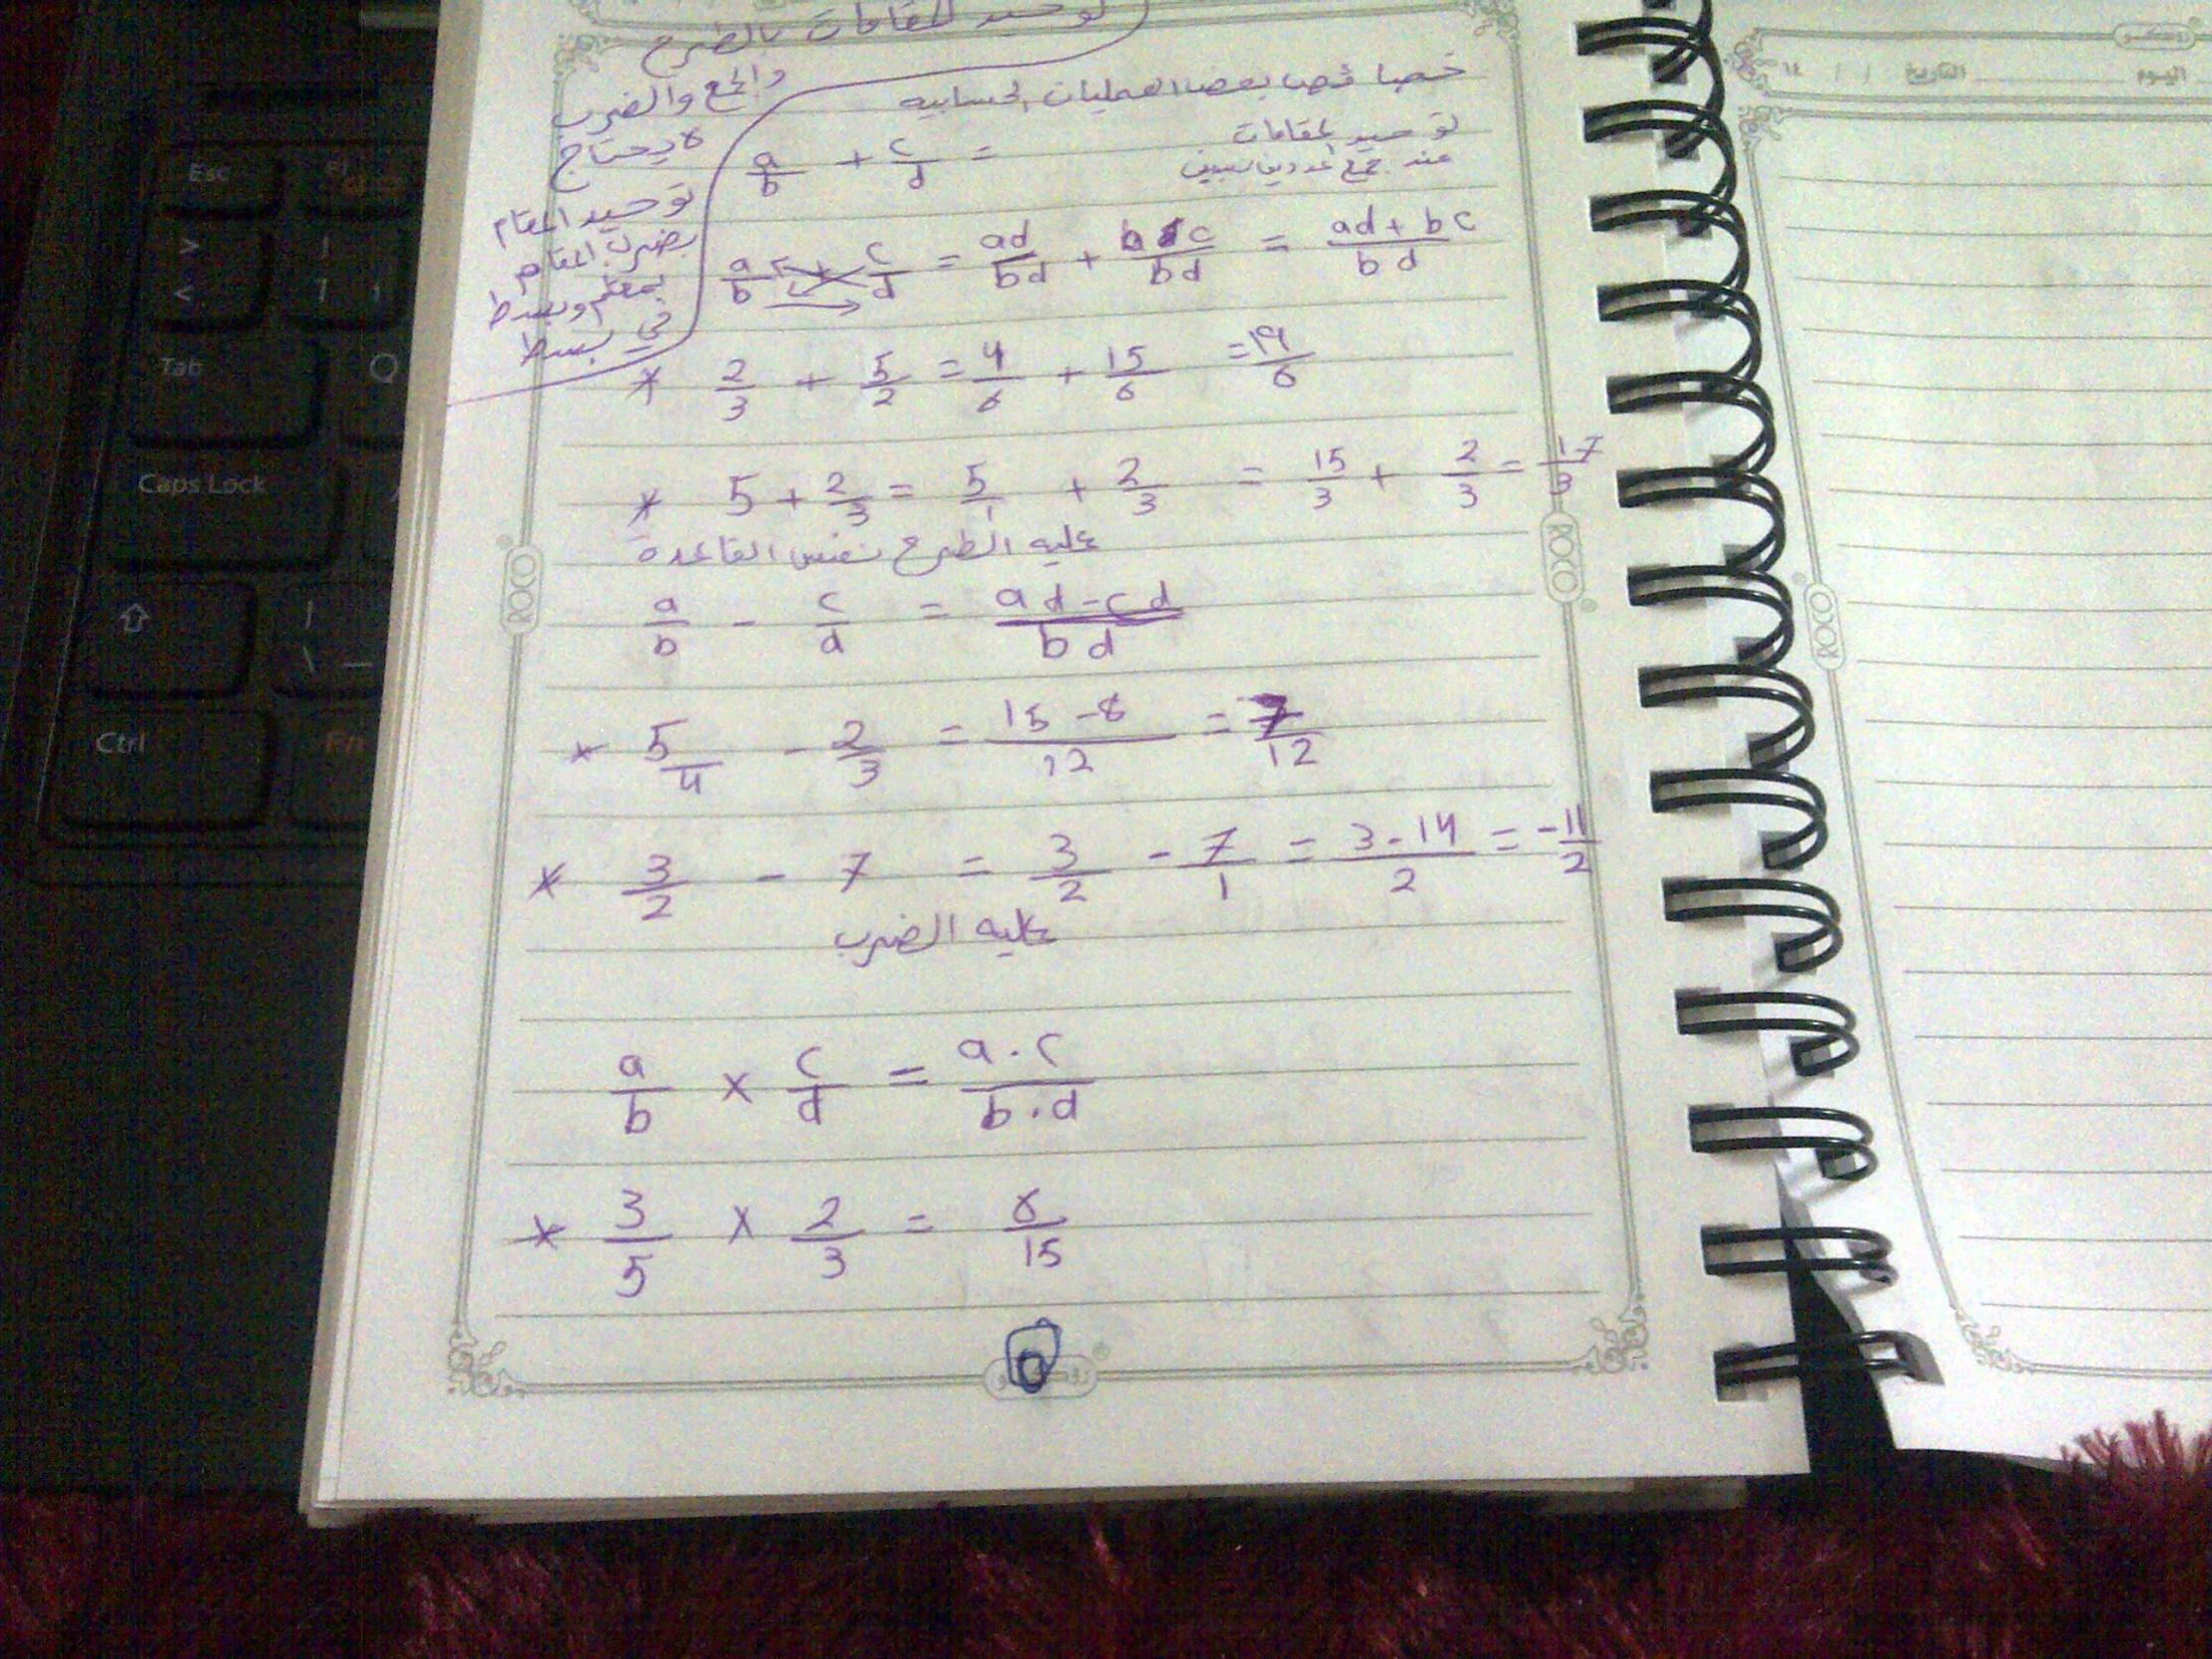 توحيد المقامات بالطرح
والجمع والضرب
لا يحتاج
توحيد المقام
بضرب المقام
بمقام وبسط
في بسط
خصائص بعض العمليات الحسابيه
توحيد المقامات
عند جمع عددين نسبيين
a/b + c/d =
a/b + c/d = ad/bd + bc/bd = ad+bc/bd
* 2/3 + 5/2 = 4/6 + 15/6 = 19/6
* 5 + 2/3 = 5/1 + 2/3 = 15/3 + 2/3 = 17/3
عليه الطرح نفس القاعده
a/b - c/d = ad-cd/bd
* 5/4 - 2/3 = 15-8/12 = 7/12
* 3/2 - 7 = 3/2 - 7/1 = 3-14/2 = -11/2
عليه الضرب
a/b × c/d = a.c/b.d
* 3/5 × 2/3 = 6/15
ROCO
ROCO
ROCO
روكو
اليوم
التاريخ / / ١٤
Esc
Tab
Q
Caps Lock
Ctrl
Fn